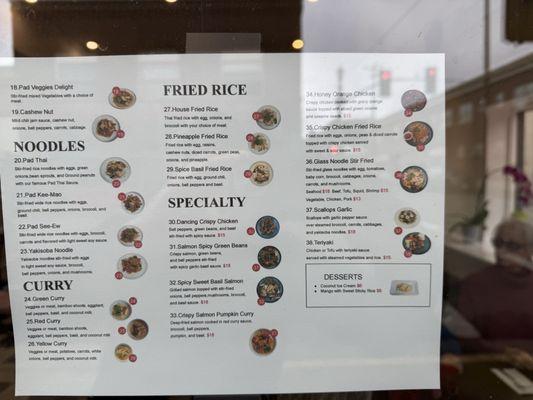 18.Pad Veggies Delight
Stir-fried mixed Vegetables with a choice of
meat.
19.Cashew Nut
Mild chili jam sauce, Cashew nuts, egg,
onions, bell peppers, carrots, cabbage.
NOODLES
20.Pad Thai
Stir-fried rice noodles with egg, green
onions,bean sprouts, and Ground peanuts
with our famous Pad Thai Sauce.
21.Pad Kee-Mao
Stir-fried wide rice noodles with egg,
ground chili, bell peppers, onions, broccoli, and
basil.
22.Pad See-Ew
Stir-fried wide rice noodles with egg, broccoli,
carrots and flavored with light sweet soy sauce
23.Yakisoba Noodle
Yakisoba noodles stir-fried with eggs
in light sweet soy sauce, broccoli,
bell peppers, onions, and mushrooms.
CURRY
24.Green Curry
Veggies or meat, bamboo shoots, eggplant,
bell peppers, basil, and coconut milk.
25.Red Curry
Veggies or meat, bamboo shoots,
eggplant, bell peppers, basil, and coconut milk.
26.Yellow Curry
Veggies or meat, potatoes, carrots, white
onions, bell peppers, and coconut milk.
FRIED RICE
27.House Fried Rice
Thai fried rice with egg, onions, and
broccoli with your choice of meat.
28.Pineapple Fried Rice
Fried rice with egg, raisins,
cashew nuts, diced carrots, green peas,
onions, and pineapple.
29.Spice Basil Fried Rice
Fried rice with egg, ground chili,
onions, bell peppers and basil.
SPECIALTY
30.Dancing Crispy Chicken
Bell peppers, green beans, and basil
stir-fried with spicy sauce $15
31.Salmon Spicy Green Beans
Crispy salmon, green beans,
and bell peppers stir-fried
with spicy garlic-basil sauce $18
32.Spicy Sweet Basil Salmon
Grilled salmon topped with stir-fried
onions, bell peppers,mushrooms, broccoli,
and basil sauce $18
33.Crispy Salmon Pumpkin Curry
Deep-fried salmon cooked in red curry sauce,
broccoli, bell peppers,
pumpkin, and basil. $18
34.Honey Orange Chicken
Crispy chicken cooked with orange
sauce topped with sliced green onions
and sesame seeds. $15
35.Crispy Chicken Fried Rice
Fried rice with eggs, onions, peas & diced carrots
topped with crispy chicken served
with sweet & sour sauce $15
36.Glass Noodle Stir Fried
Stir-fried glass noodles with egg, tomatoes,
baby corn, broccoli, cabbages, onions,
carrots, and mushrooms.
Seafood $18 Beef, Tofu, Squid, Shrimp $15
Vegetable, Chicken, Pork $13
37.Scallops Garlic
Scallops with garlic pepper sauce
over steamed broccoli, carrots, cabbages,
and yakisoba noodles. $18
38.Teriyaki
Chicken or Tofu with teriyaki sauce
served with steamed vegetables and rice. $15
DESSERTS
Coconut Ice Cream $6
Mango with Sweet Sticky Rice $8